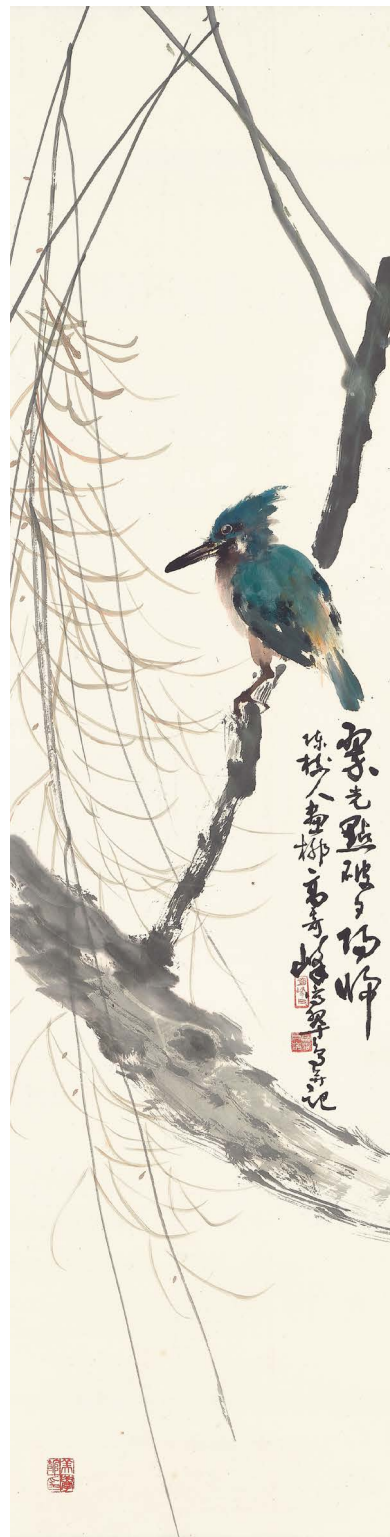 翠光點破夕陽歸
陳樹人畫柳高奇峰寫翠鳥并記